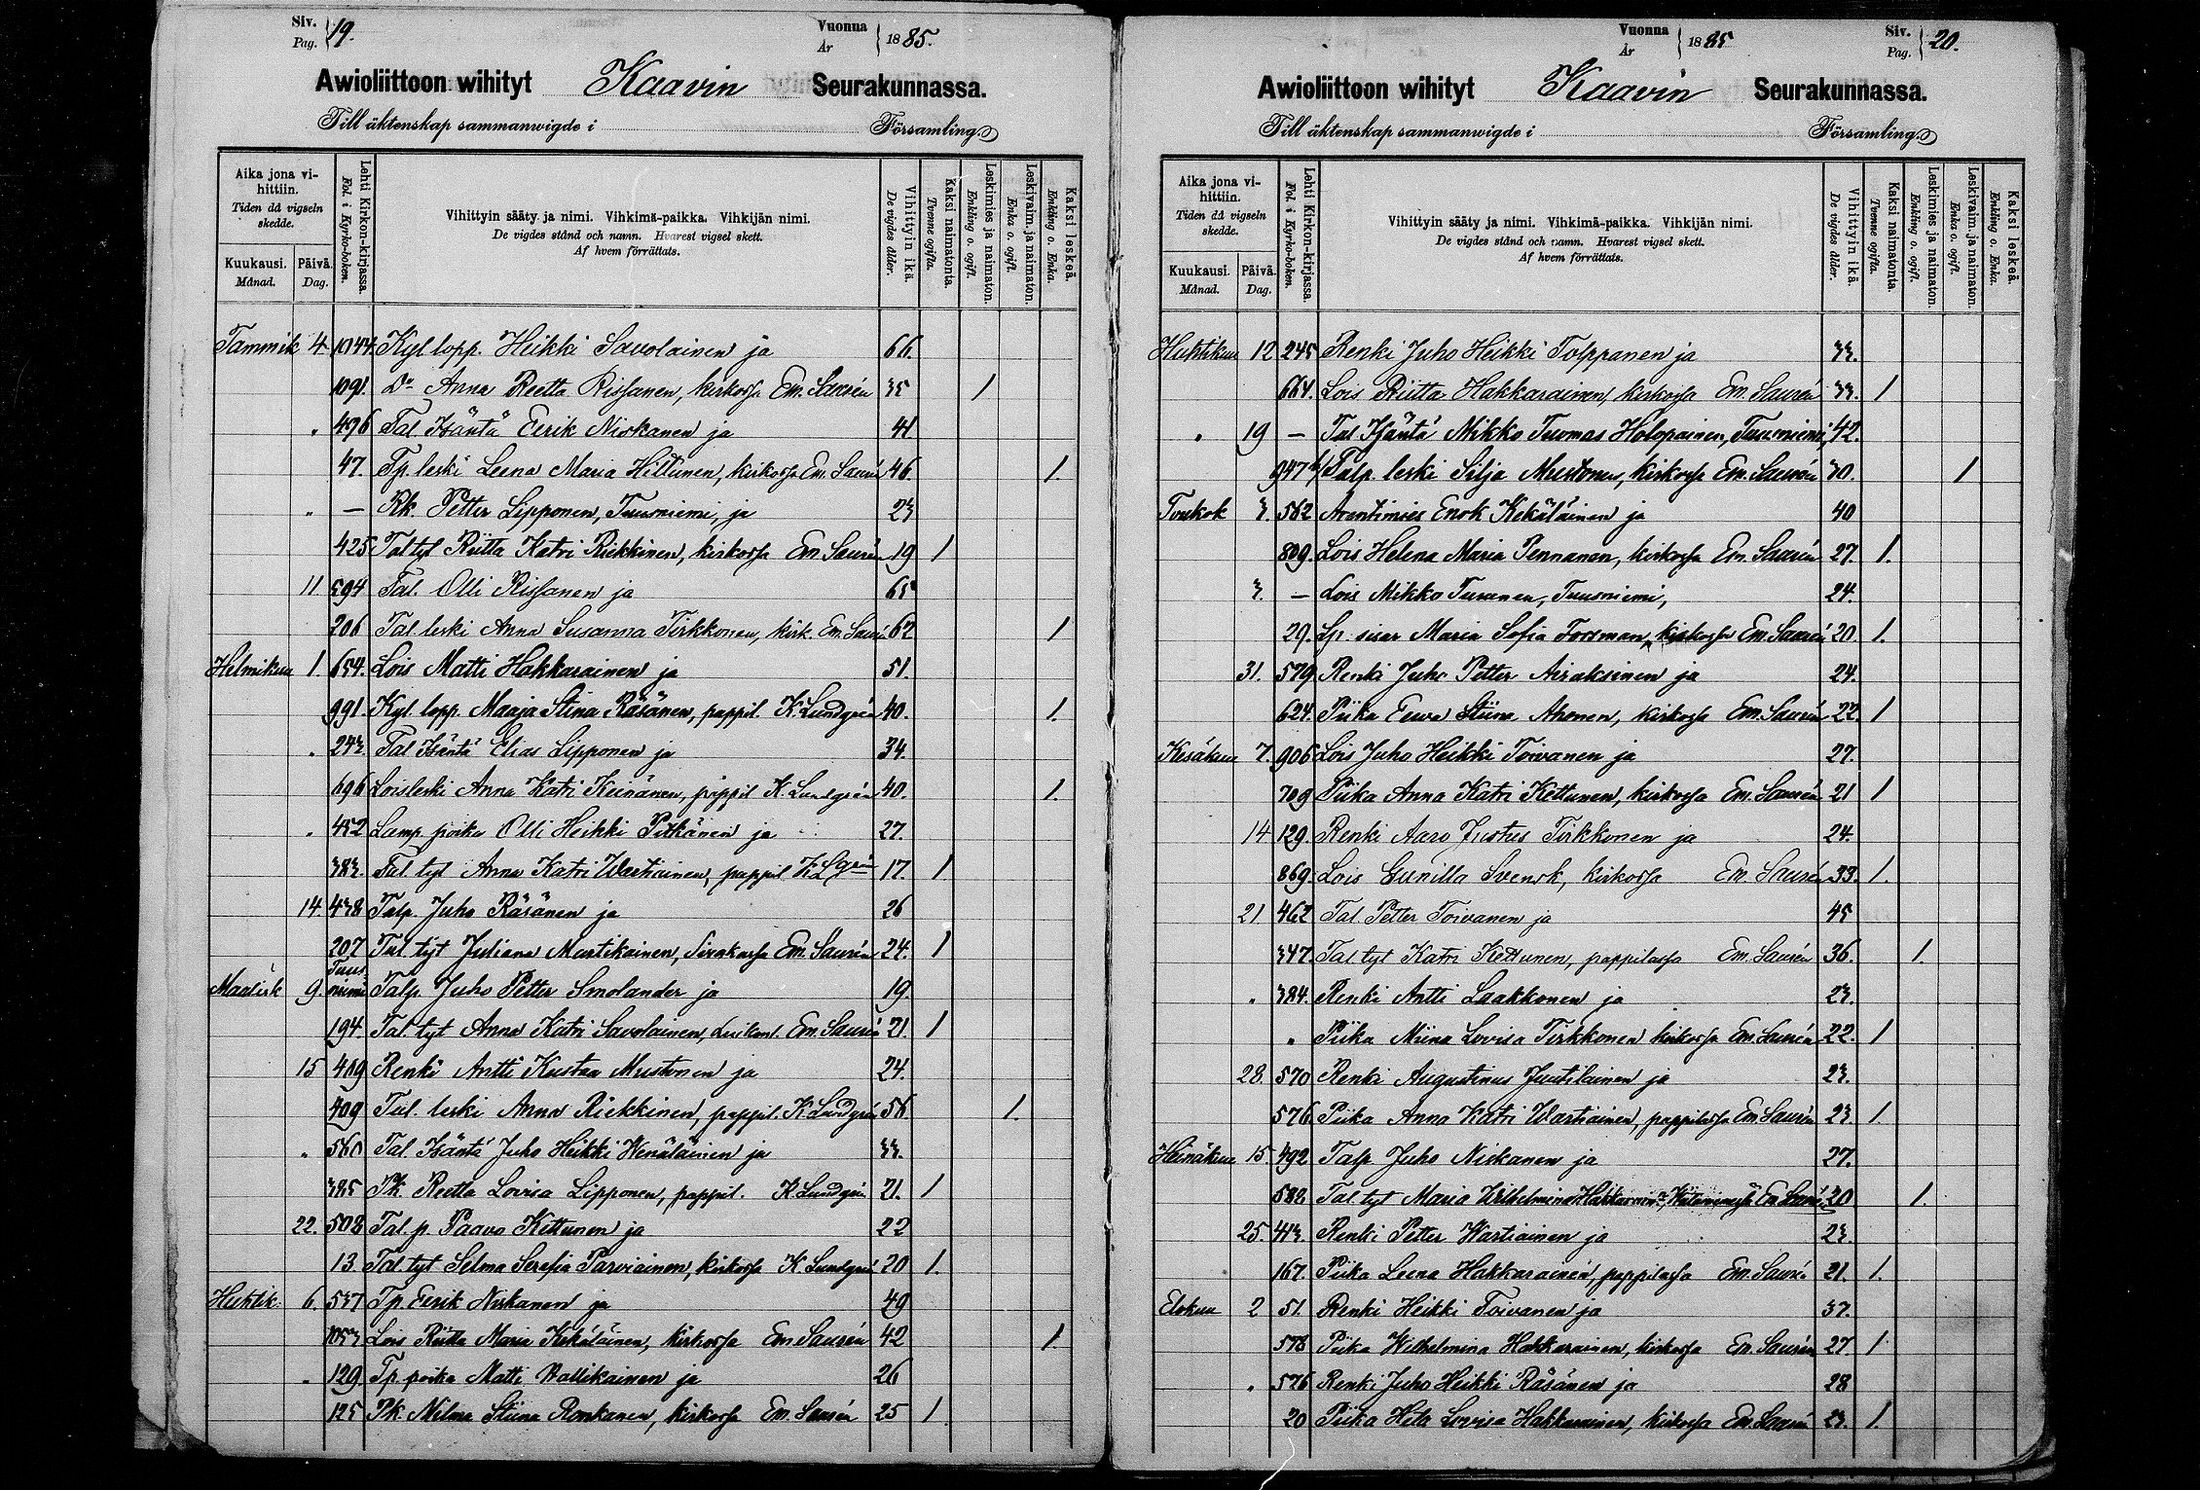 Siv. Pag. 19.
Vuonna År 1885.
Awioliittoon wihityt Kaavin Seurakunnassa.
Till äktenskap sammanwigde i Församling.
Aika jona vihittiin. Tiden då vigseln skedde.
Kuukausi. Månad.
Päivä. Dag.
Lehti Kirkon-kirjassa. Fol. i Kyrko-boken.
Vihittyin sääty ja nimi. Vihkimä-paikka. Vihkijän nimi.
De vigdes stånd och namn. Hvarest vigsel skett.
Af hvem förrättats.
Vihittyin ikä. De vigdes ålder.
Kaksi naimatonta. Tvenne ogifta.
Leskimies ja naimaton. Enkling o. ogift.
Leskivaim. ja naimaton. Enka o. ogift.
Kaksi leskeä. Enkling o. Enka.
Tammik 4 1044. Kyl. lopp. Heikki Savolainen ja 66.
1091. Do Anna Reetta Rissanen, kirkossa Em. Saurén 35 1
" 496 Tal. Isäntä Eerik Niskanen ja 41
47. Tp. leski Leena Maria Hiltunen, kirkossa Em. Saurén 46. 1.
" — Rk. Petter Lipponen, Tuusniemi, ja 23
425 Tal tyt Riitta Katri Riekkinen, kirkossa Em Saurén 19 1
11 594 Tal. Olli Rissanen ja 65
206 Tal. leski Anna Susanna Tirkkonen, kirk. Em. Saurén 62 1
Helmikuu 1. 654. Lois Matti Hakkarainen ja 51.
991. Kyl. lopp. Maaja Stina Räsänen, pappil. K Lundgrén 40. 1.
" 243. Tal Isäntä Elias Lipponen ja 34.
696 Loisleski Anna Katri Keinänen, pappil K. Lundgrén 40. 1.
" 452 Lamp. poika Olli Heikki Pitkänen ja 27.
383. Tal. tyt Anna Katri Wartiainen, pappil K Lgrén 17. 1
14. 438 Talp. Juho Räsänen ja 26
207 Tal. tyt Juliana Martikainen, Sivakassa Em. Saurén 24. 1
Maalisk 9. Tuusniemi Talp. Juho Petter Smolander ja 19.
194. Tal. tyt Anna Katri Savolainen, Em. Saurén 21. 1
15 409 Renki Antti Kustaa Mustonen ja 24.
409 Tal. leski Anna Riekkinen, pappil. K Lundgrén 56 1.
" 560 Tal Isäntä Juho Heikki Wenäläinen ja 33.
385 Pk. Reetta Lovisa Lipponen, pappil. K Lundgrén 21. 1
22. 508 Tal. p. Paavo Kettunen ja 22
13. Tal. tyt Selma Serafia Parviainen, kirkossa K Lundgrén 20 1.
Huhtik. 6. 537 Tp. Eerik Niskanen ja 49
1053 Lois Riitta Maria Kekäläinen, kirkossa Em Saurén 42 1.
" 129. Tp. poika Matti Wallikainen ja 26
125 Pk. Milma Stiina Ronkanen, kirkossa Em. Saurén 25 1
Vuonna År 1885
Siv. Pag. 20.
Awioliittoon wihityt Kaavin Seurakunnassa.
Till äktenskap sammanwigde i Församling.
Aika jona vihittiin. Tiden då vigseln skedde.
Kuukausi. Månad.
Päivä. Dag.
Lehti Kirkon-kirjassa. Fol. i Kyrko-boken.
Vihittyin sääty ja nimi. Vihkimä-paikka. Vihkijän nimi.
De vigdes stånd och namn. Hvarest vigsel skett.
Af hvem förrättats.
Vihittyin ikä. De vigdes ålder.
Kaksi naimatonta. Tvenne ogifta.
Leskimies ja naimaton. Enkling o. ogift.
Leskivaim. ja naimaton. Enka o. ogift.
Kaksi leskeä. Enkling o. Enka.
Huhtikuu 12 245 Renki Juho Heikki Tolppanen ja 33.
664. Lois Riitta Hakkarainen, kirkossa Em. Saurén 33. 1
" 19 — Tal. Isäntä Mikko Tuomas Holopainen, Tuusniemi, 42.
947 Talp. leski Silja Mustonen, kirkossa Em. Saurén 30. 1
Toukok 3. 562 Arentimies Enok Kekäläinen ja 40
809. Lois Helena Maria Pennanen, kirkossa Em. Saurén 27. 1.
3. — Lois Mikko Turunen, Tuusniemi, 24.
29. Sp. sisar Maria Sofia Forsman, kirkossa Em. Saurén 20 1.
31. 579 Renki Juho Petter Airaksinen ja 24.
624. Piika Eewa Stiina Ahonen, kirkossa Em. Saurén 22 1
Kesäkuu 7. 906 Lois Juho Heikki Toivanen ja 27.
709 Piika Anna Katri Kettunen, kirkossa Em. Saurén 21 1
14 129. Renki Aaro Justus Tirkkonen ja 24.
869. Lois Gunilla Svensk, kirkossa Em. Saurén 33. 1.
21. 462 Tal. Petter Toivanen ja 45
347. Tal tyt Katri Kettunen, pappilassa Em. Saurén 36. 1.
" 384. Renki Antti Laakkonen ja 23.
" Piika Miina Lovisa Tirkkonen kirkossa Em. Saurén 22. 1
28. 570 Renki Augustinus Juutilainen ja 23.
576 Piika Anna Katri Wartiainen, pappilassa Em. Saurén 23. 1.
Heinäkuu 15 492 Talp Juho Niskanen ja 27.
582 Tal. tyt Maria Wilhelmina Hakkarainen, Em Saurén 20 1.
25. 413. Renki Petter Wartiainen ja 23.
167. Piika Leena Hakkarainen, pappilassa Em. Saurén 21. 1.
Elokuu 2 51. Renki Heikki Toivanen ja 37.
578 Piika Wilhelmina Hakkarainen, kirkossa Em. Saurén 27. 1.
" 576 Renki Juho Heikki Räsänen ja 28
20 Piika Heta Lovisa Hakkarainen, kirkossa Em. Saurén 23. 1.